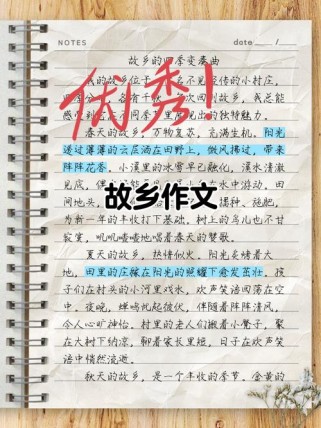 NOTES date / /
故乡的四季变奏曲
的故乡位于 名不见经传的小村庄
各有千秋 次回到故乡，我总能
感 不同 现出的独特魅力。
优秀！
春天的故乡，万物复苏，充满生机。阳光
透过薄薄的云层洒在田野上，微风拂过，带来
阵阵花香。小溪里的冰雪早已融化，溪水清澈
见底， 水中游动。田
间地头， 播种、施肥，
故乡作文
为新一年的丰收打下基础。树上的鸟儿也不甘
寂寞，叽叽喳喳地唱着春天的赞歌。
夏天的故乡，热情似火。阳光炙烤着大
地，田里的庄稼在阳光的照耀下愈发茁壮。孩
子们在村头的小河里戏水，欢声笑语回荡在空
中。夜晚，蝉鸣此起彼伏，伴随着阵阵清风，
令人心旷神怡。村里的老人们搬着小凳子，聚
在大树下纳凉，聊着家长里短，日子在欢声笑
语中悄然流逝。
秋天的故乡，是一个丰收的季节。金黄的